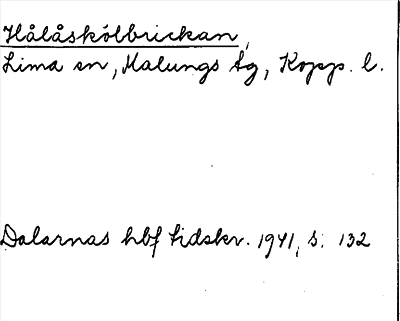 Hålåskölbrickan,
Lima sn, Malungs tg, Kopp. l.
Dalarnas hbf tidskr. 1941, s. 132